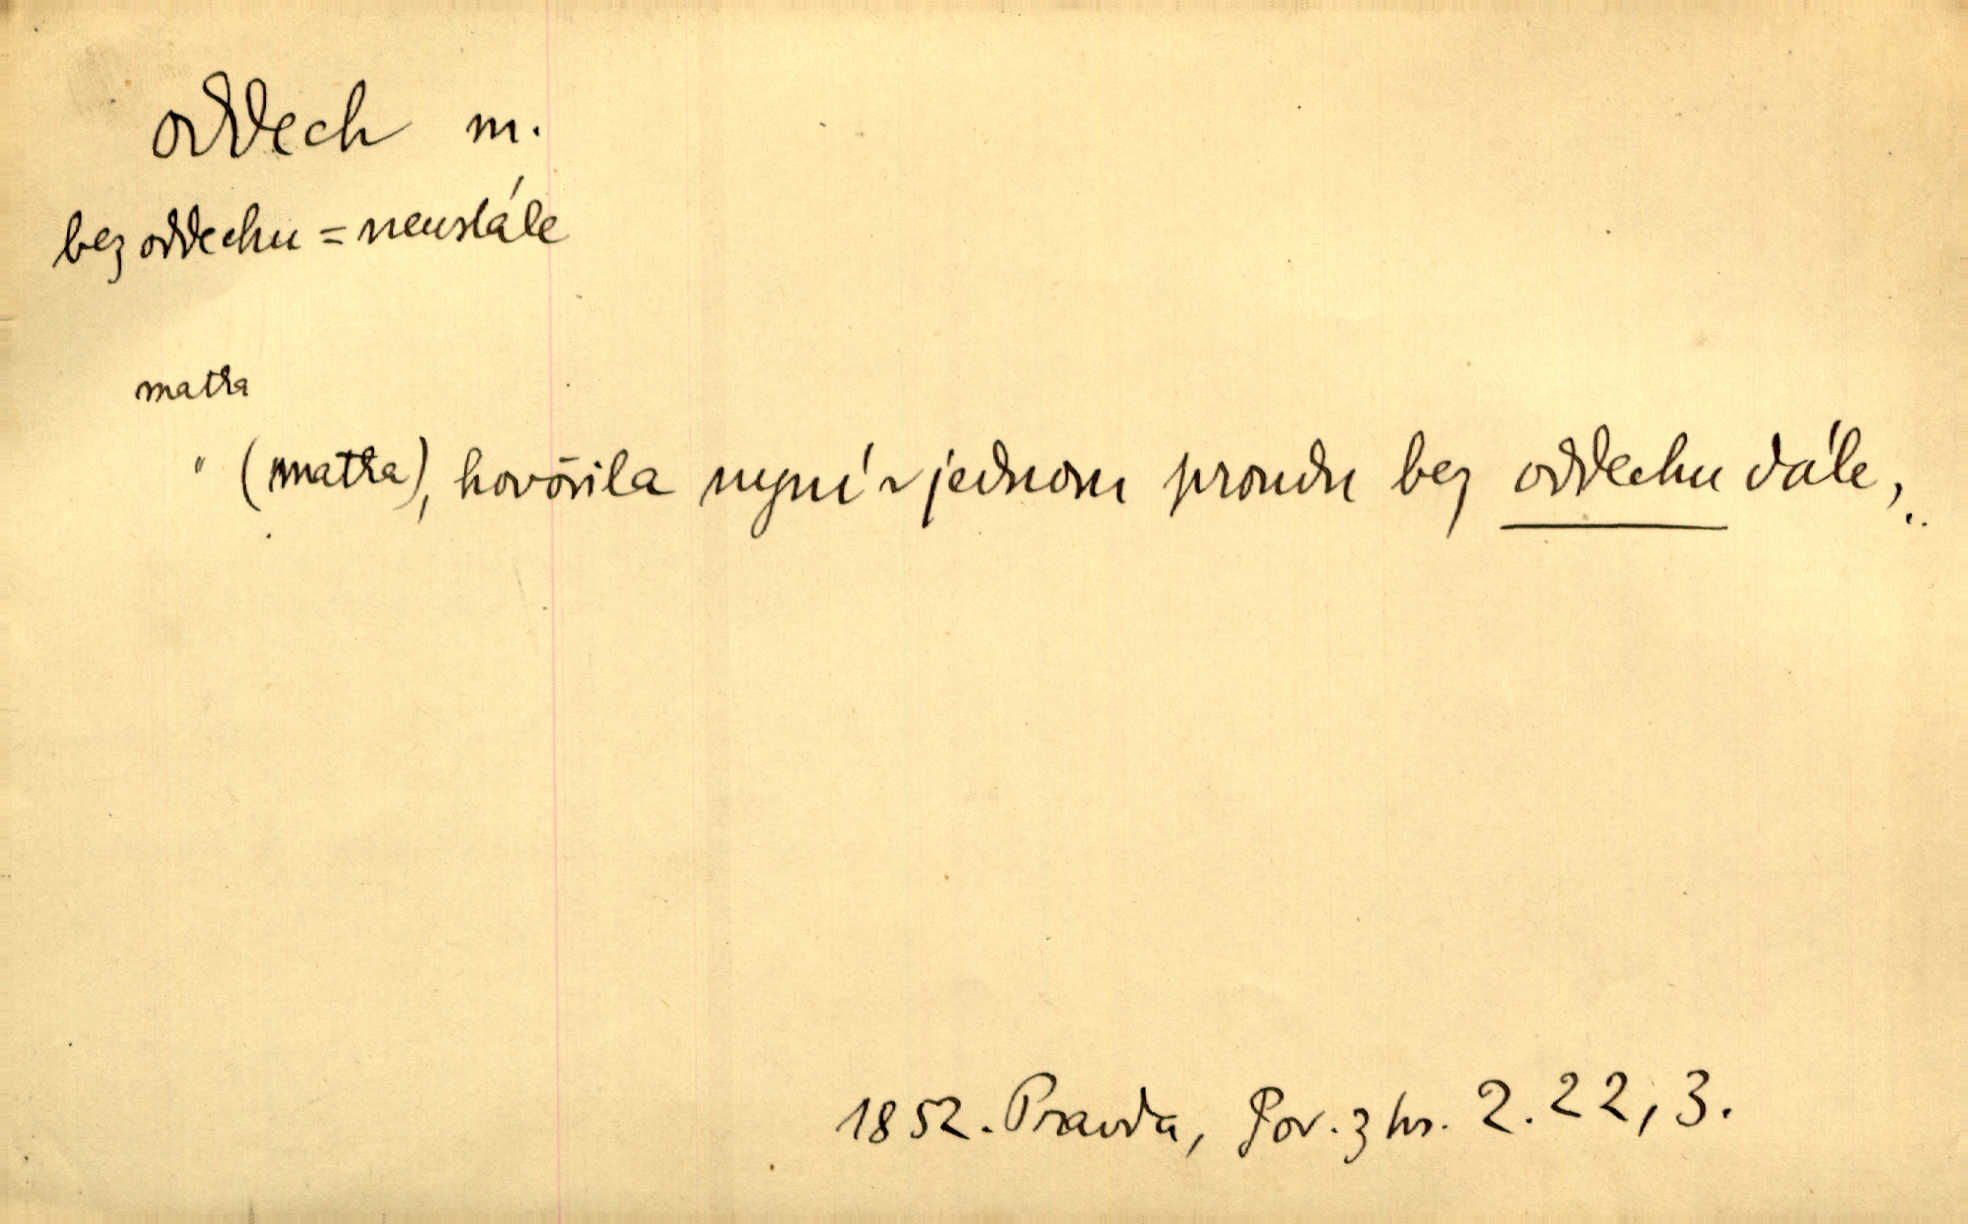 oddech m.
bez oddechu = neustále
matka
" (matka), hovořila nyní v jednom proudu bez oddechu dále, ..
1852. Pravda, Pov. z kr. 2. 22, 3.